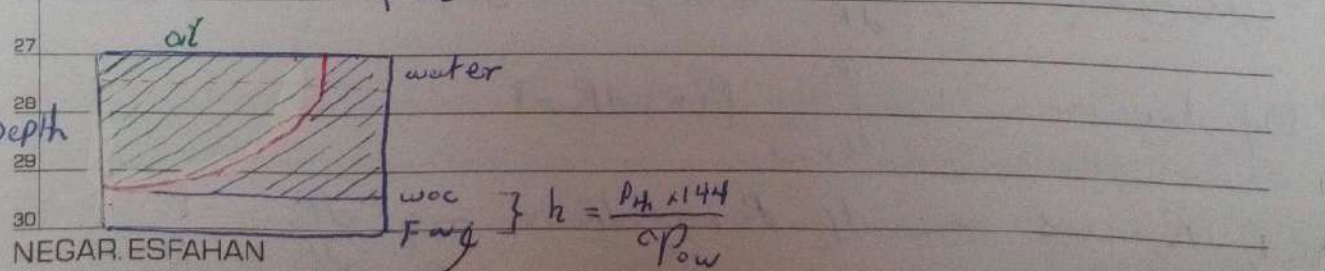 27 oil
water
28
Depth
29
woc
30 FWL } h = Pth x 144 / ΔPow
NEGAR.ESFAHAN